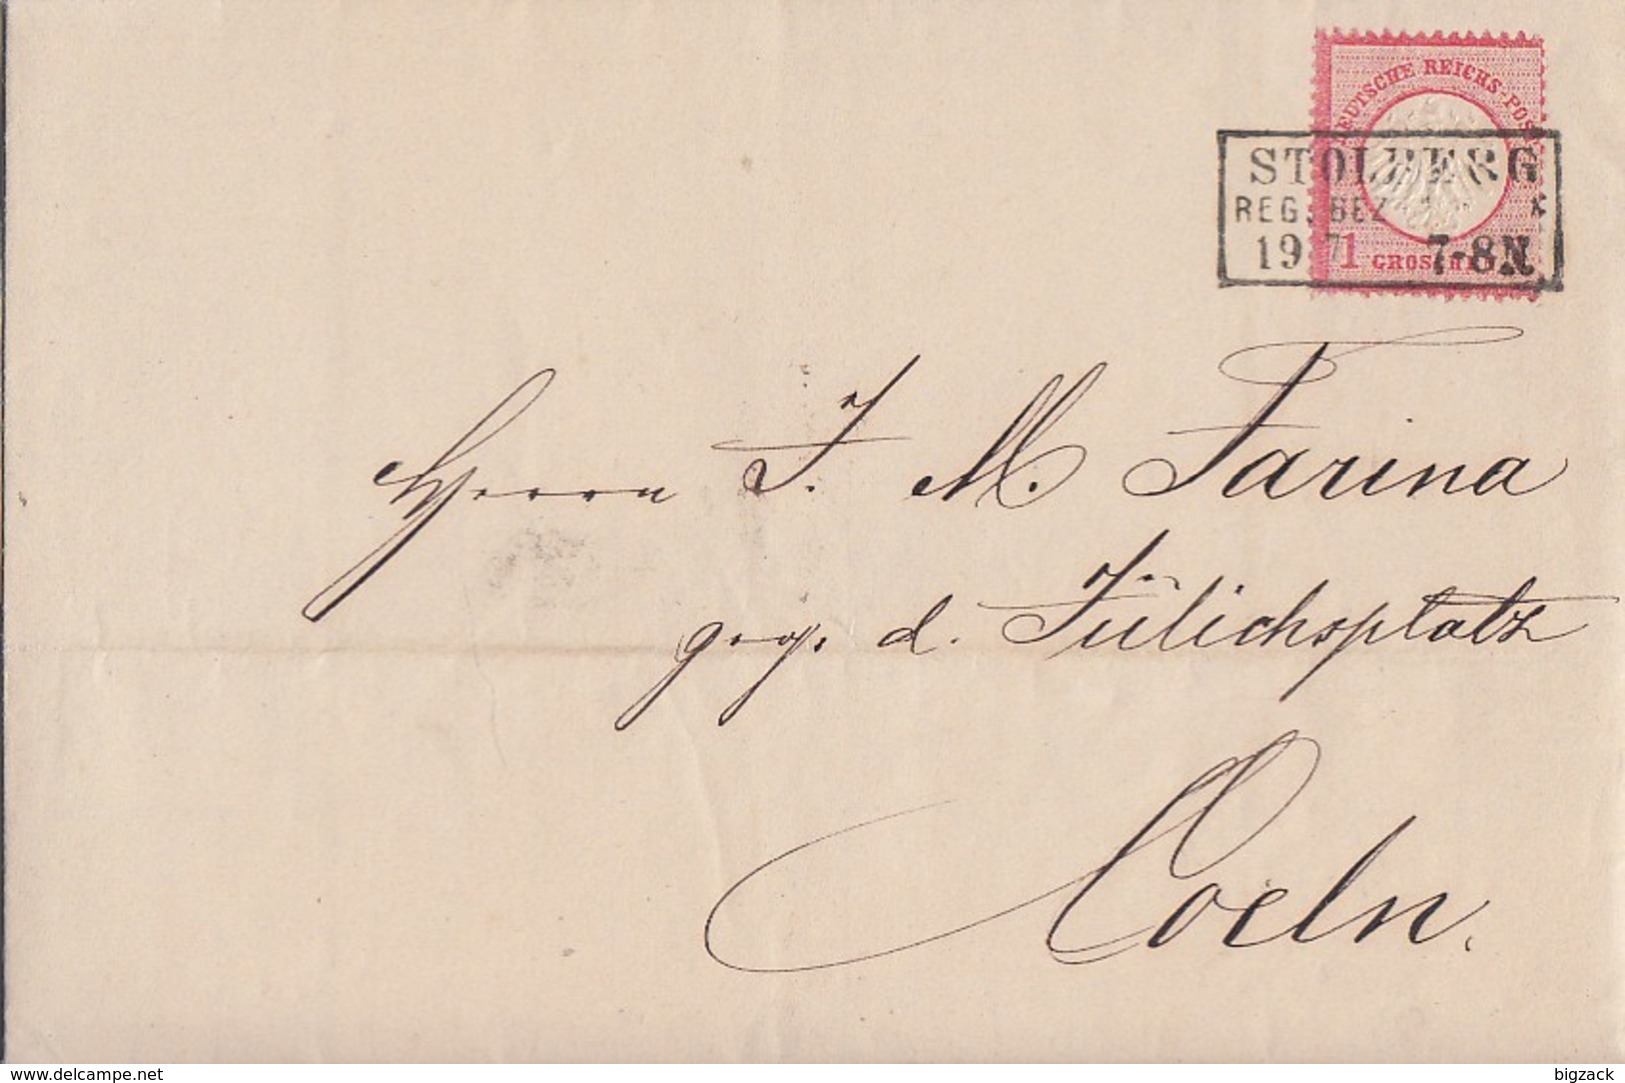 DEUTSCHE REICHS-POST
STOLBERG
REG. BEZ
19 7 7-8N
1 GROSCHEN
Herrn J. M. Farina
gegr. d. Jülichsplatz
Coeln.
www.delcampe.net
bigzack